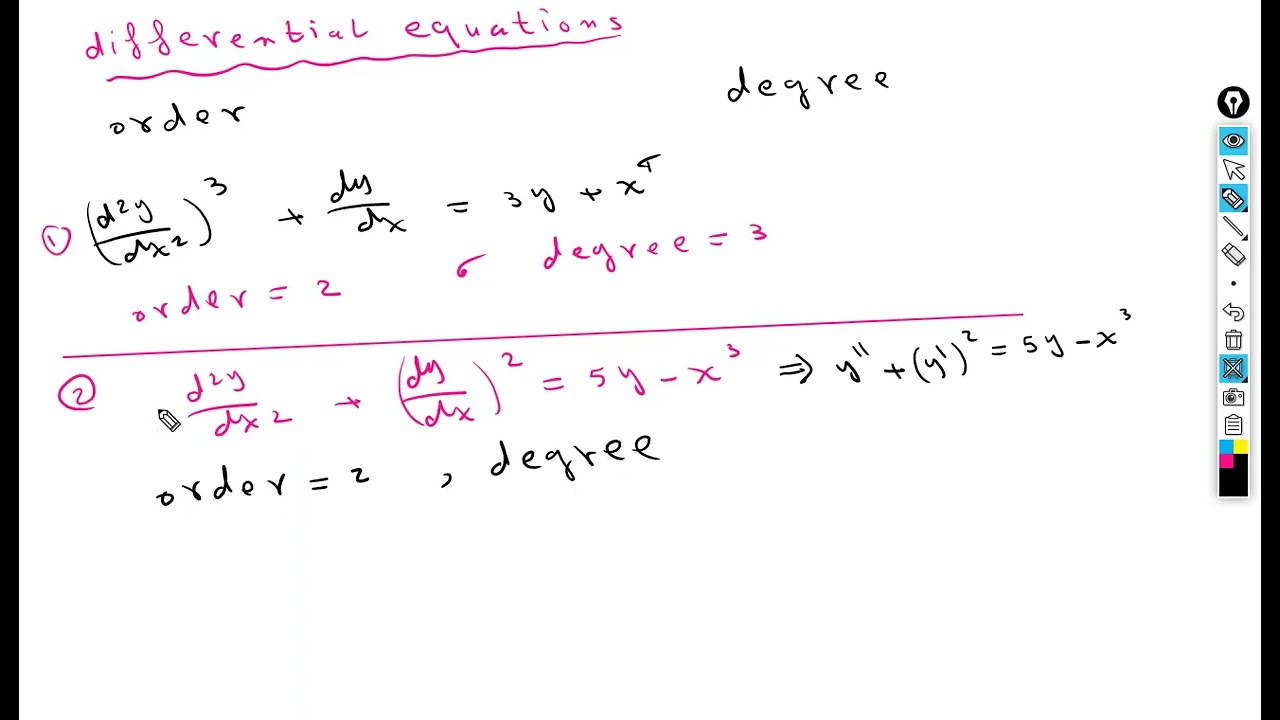 differential equations
order degree
① (d²y/dx²)³ + dy/dx = 3y + x
order = 2 , degree = 3
② d²y/dx² + (dy/dx)² = 5y - x³ ⇒ y'' + (y')² = 5y - x³
order = 2 , degree